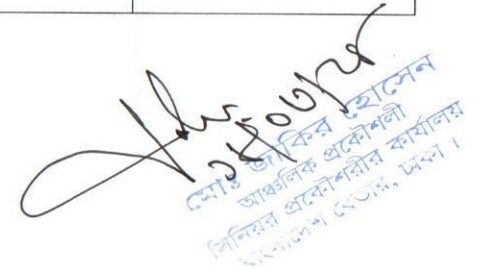 মোঃ জাকির হোসেন
আঞ্চলিক প্রকৌশলী
সিনিয়র প্রকৌশলীর কার্যালয়
বাংলাদেশ বেতার, ঢাকা।